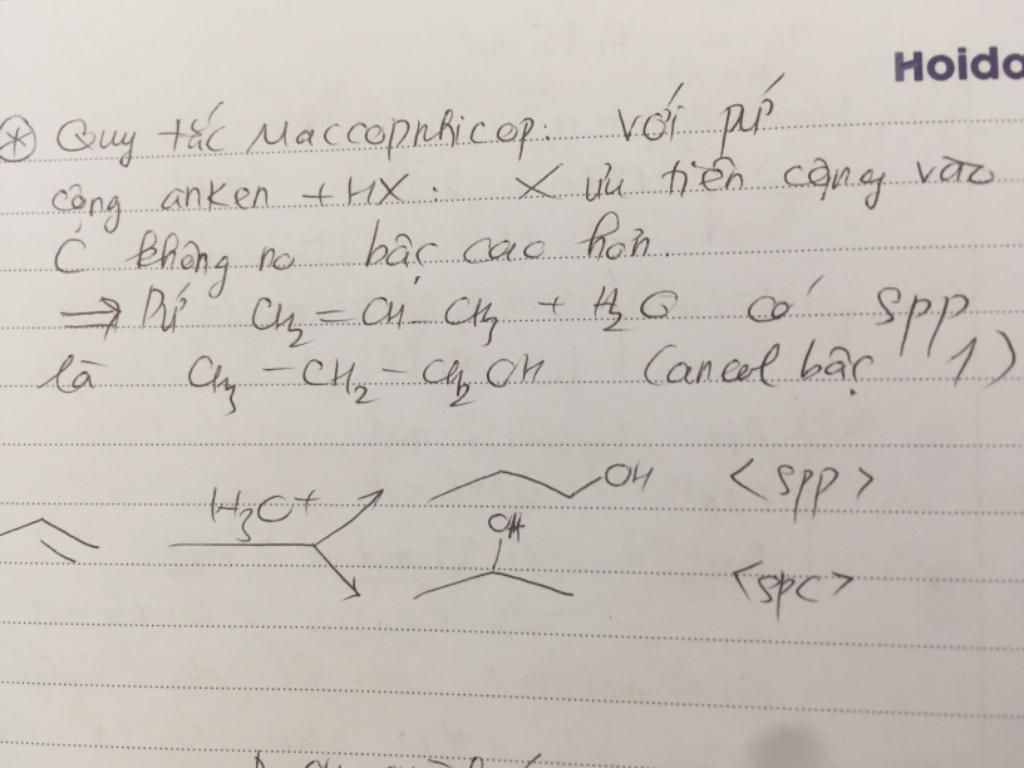 Hoido
* Quy tắc Maccopnhicop: với pứ
cộng anken + HX: X ưu tiên cộng vào
C không no bậc cao hơn.
⇒ Pứ CH2 = CH - CH3 + H2O có spp
là CH3 - CH2 - CH2OH (ancol bậc 1)
H3O+
OH <spp>
OH
<spc>